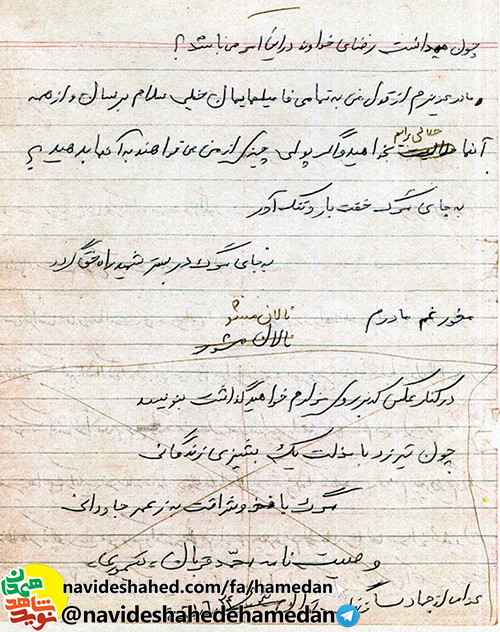 چون میدانست رضای خداوند در این امر می باشد ؟
مادر عزیزم از قول من به تمامی فامیلهایمان خیلی سلام برسان و از همه
آنها حلالی برایم بخواهید و اگر پولی چیزی از من می خواهند به آنها بدهید
به جای مرگ خفت بار و ننگ آور
به جای مرگ در بستر شهید راه حق گردد
مخور غم مادرم نالان مشو
نالان مشو
در کنار عکس که بر روی مزارم خواهید گذاشت بنویسید
چون نیرزد با مذلت یک پشیزی زندگانی
مرگ با فخر و شرافت به ز عمر جاودانی
وصیت نامه
navideshahed.com/fa/hamedan
@navideshahedehamedan
نوید شاهد
همدان